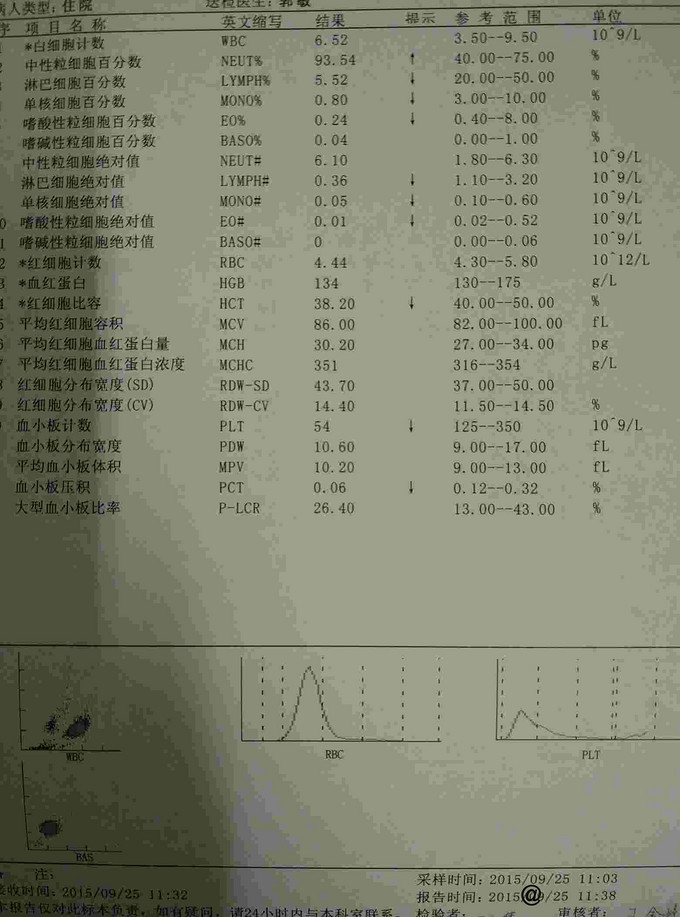 病人类型: 住院 送检医生: 郭敏
序 项目名称 英文缩写 结果 提示 参考范围 单位
*白细胞计数 WBC 6.52 3.50--9.50 10^9/L
2 中性粒细胞百分数 NEUT% 93.54 ↑ 40.00--75.00 %
淋巴细胞百分数 LYMPH% 5.52 ↓ 20.00--50.00 %
单核细胞百分数 MONO% 0.80 ↓ 3.00--10.00 %
嗜酸性粒细胞百分数 EO% 0.24 ↓ 0.40--8.00 %
嗜碱性粒细胞百分数 BASO% 0.04 0.00--1.00 %
中性粒细胞绝对值 NEUT# 6.10 1.80--6.30 10^9/L
淋巴细胞绝对值 LYMPH# 0.36 ↓ 1.10--3.20 10^9/L
单核细胞绝对值 MONO# 0.05 ↓ 0.10--0.60 10^9/L
0 嗜酸性粒细胞绝对值 EO# 0.01 ↓ 0.02--0.52 10^9/L
1 嗜碱性粒细胞绝对值 BASO# 0 0.00--0.06 10^9/L
2 *红细胞计数 RBC 4.44 4.30--5.80 10^12/L
3 *血红蛋白 HGB 134 130--175 g/L
4 *红细胞比容 HCT 38.20 ↓ 40.00--50.00 %
5 平均红细胞容积 MCV 86.00 82.00--100.00 fL
6 平均红细胞血红蛋白量 MCH 30.20 27.00--34.00 pg
7 平均红细胞血红蛋白浓度 MCHC 351 316--354 g/L
8 红细胞分布宽度(SD) RDW-SD 43.70 37.00--50.00
9 红细胞分布宽度(CV) RDW-CV 14.40 11.50--14.50 %
血小板计数 PLT 54 ↓ 125--350 10^9/L
血小板分布宽度 PDW 10.60 9.00--17.00 fL
平均血小板体积 MPV 10.20 9.00--13.00 fL
血小板压积 PCT 0.06 ↓ 0.12--0.32 %
大型血小板比率 P-LCR 26.40 13.00--43.00 %
WBC RBC PLT
BAS
* 注:
采样时间: 2015/09/25 11:03
接收时间: 2015/09/25 11:32 报告时间: 2015/09/25 11:38
本报告仅对此标本负责, 如有疑问, 请24小时内与本科室联系。 检验者: 审核者:
@